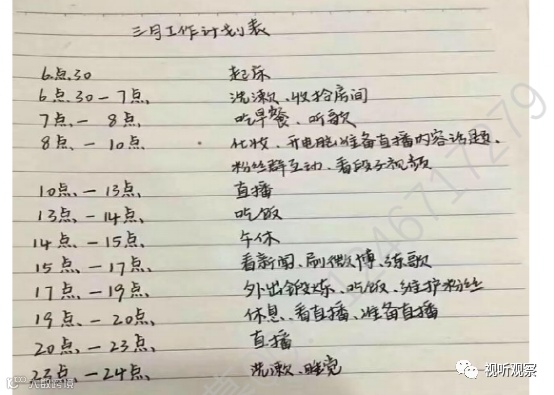 三月工作计划表
6点30 起床
6点30-7点、 洗漱、收拾房间
7点、-8点、 吃早餐、听歌
8点、-10点、 化妆、开电脑准备直播内容话题、
粉丝群互动、看段子视频
10点、-13点、 直播
13点、-14点、 吃饭
14点、-15点、 午休
15点、-17点、 看新闻、刷微博、练歌
17点、-19点、 外出锻炼、吃饭、维护粉丝
19点、-20点、 休息、看直播、准备直播
20点、-23点、 直播
23点-24点、 洗漱、睡觉
视听观察
1246717279